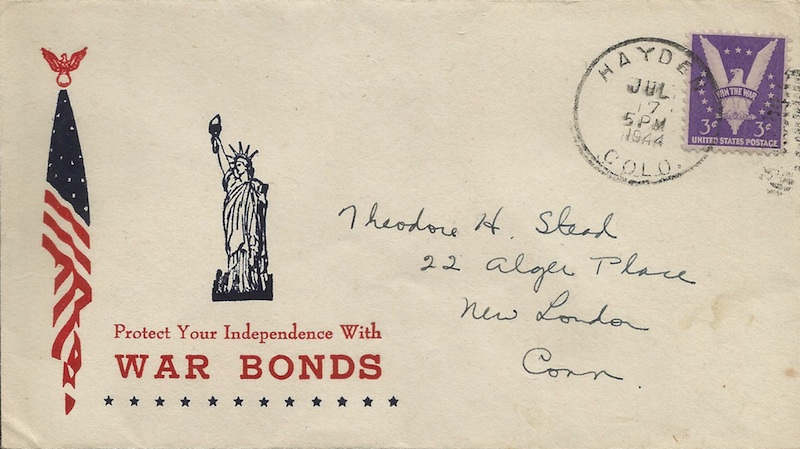 HAYDEN
JUL
17
5 PM
1944
COLO.
WIN THE WAR
3¢ 3¢
UNITED STATES POSTAGE
Theodore H. Stead
22 Alger Place
New London
Conn.
Protect Your Independence With
WAR BONDS